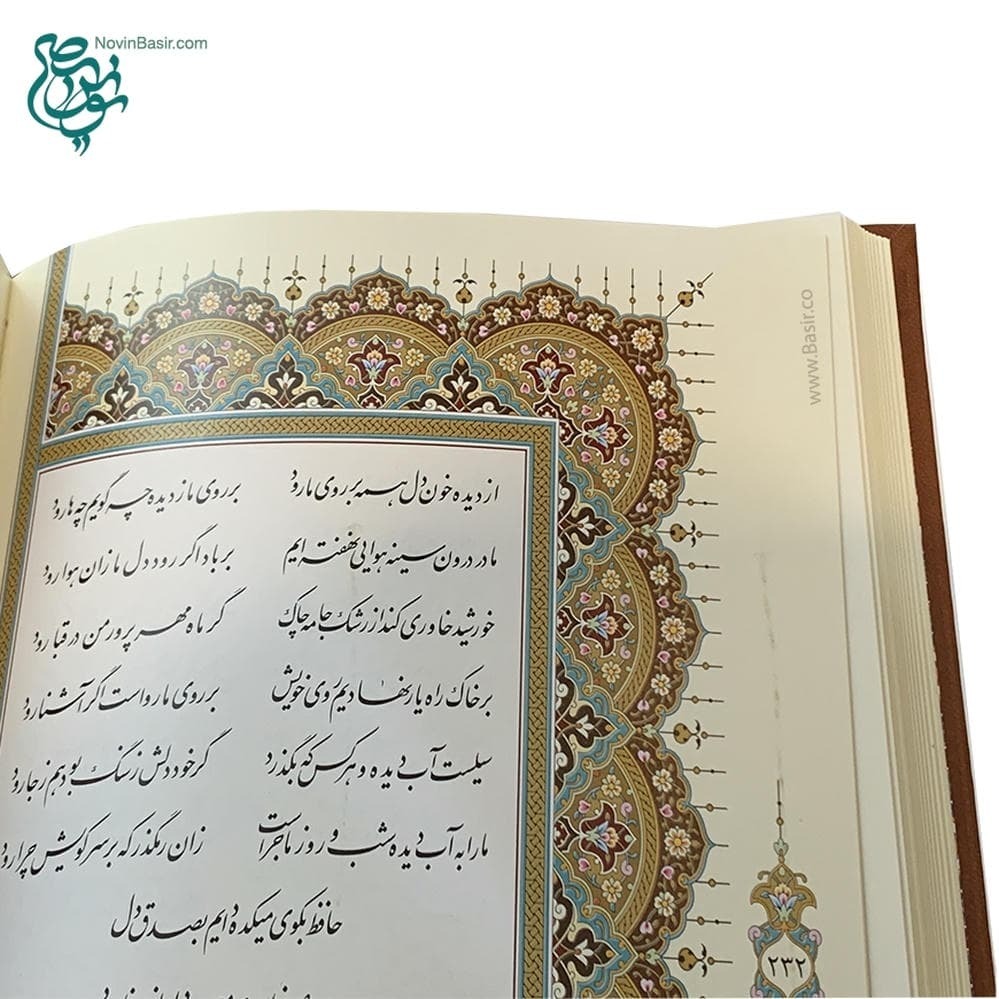 NovinBasir.com
نوین بصیر
www.Basir.co
از دیده خون دل همه بر روی ما رود بر روی ما ز دیده چه گویم چه ها رود
ما در درون سینه هوایی نهفته ایم بر باد اگر رود دل ما زان هوا رود
خورشید خاوری کند از رشک جامه چاک گر ماه مهر پرور من در قبا رود
بر خاک راه یار نهادیم روی خویش بر روی ما رواست اگر آشنا رود
سیلست آب دیده و هر کس که بگذرد گر خود دلش ز سنگ بود هم ز جا رود
ما را به آب دیده شب و روز ماجراست زان رهگذر که بر سر کویش چرا رود
حافظ بکوی میکده دایم بصدق دل
۲۳۲